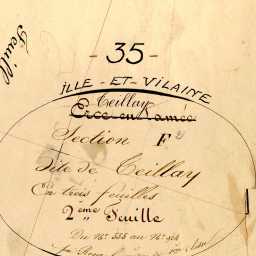 - 35 -
ILLE - ET - VILAINE
Teillay
Ercé-en-Lamée
Section F
Dite de Teillay
En trois feuilles
2ème Feuille
Du N° 555 au N°
Feuill